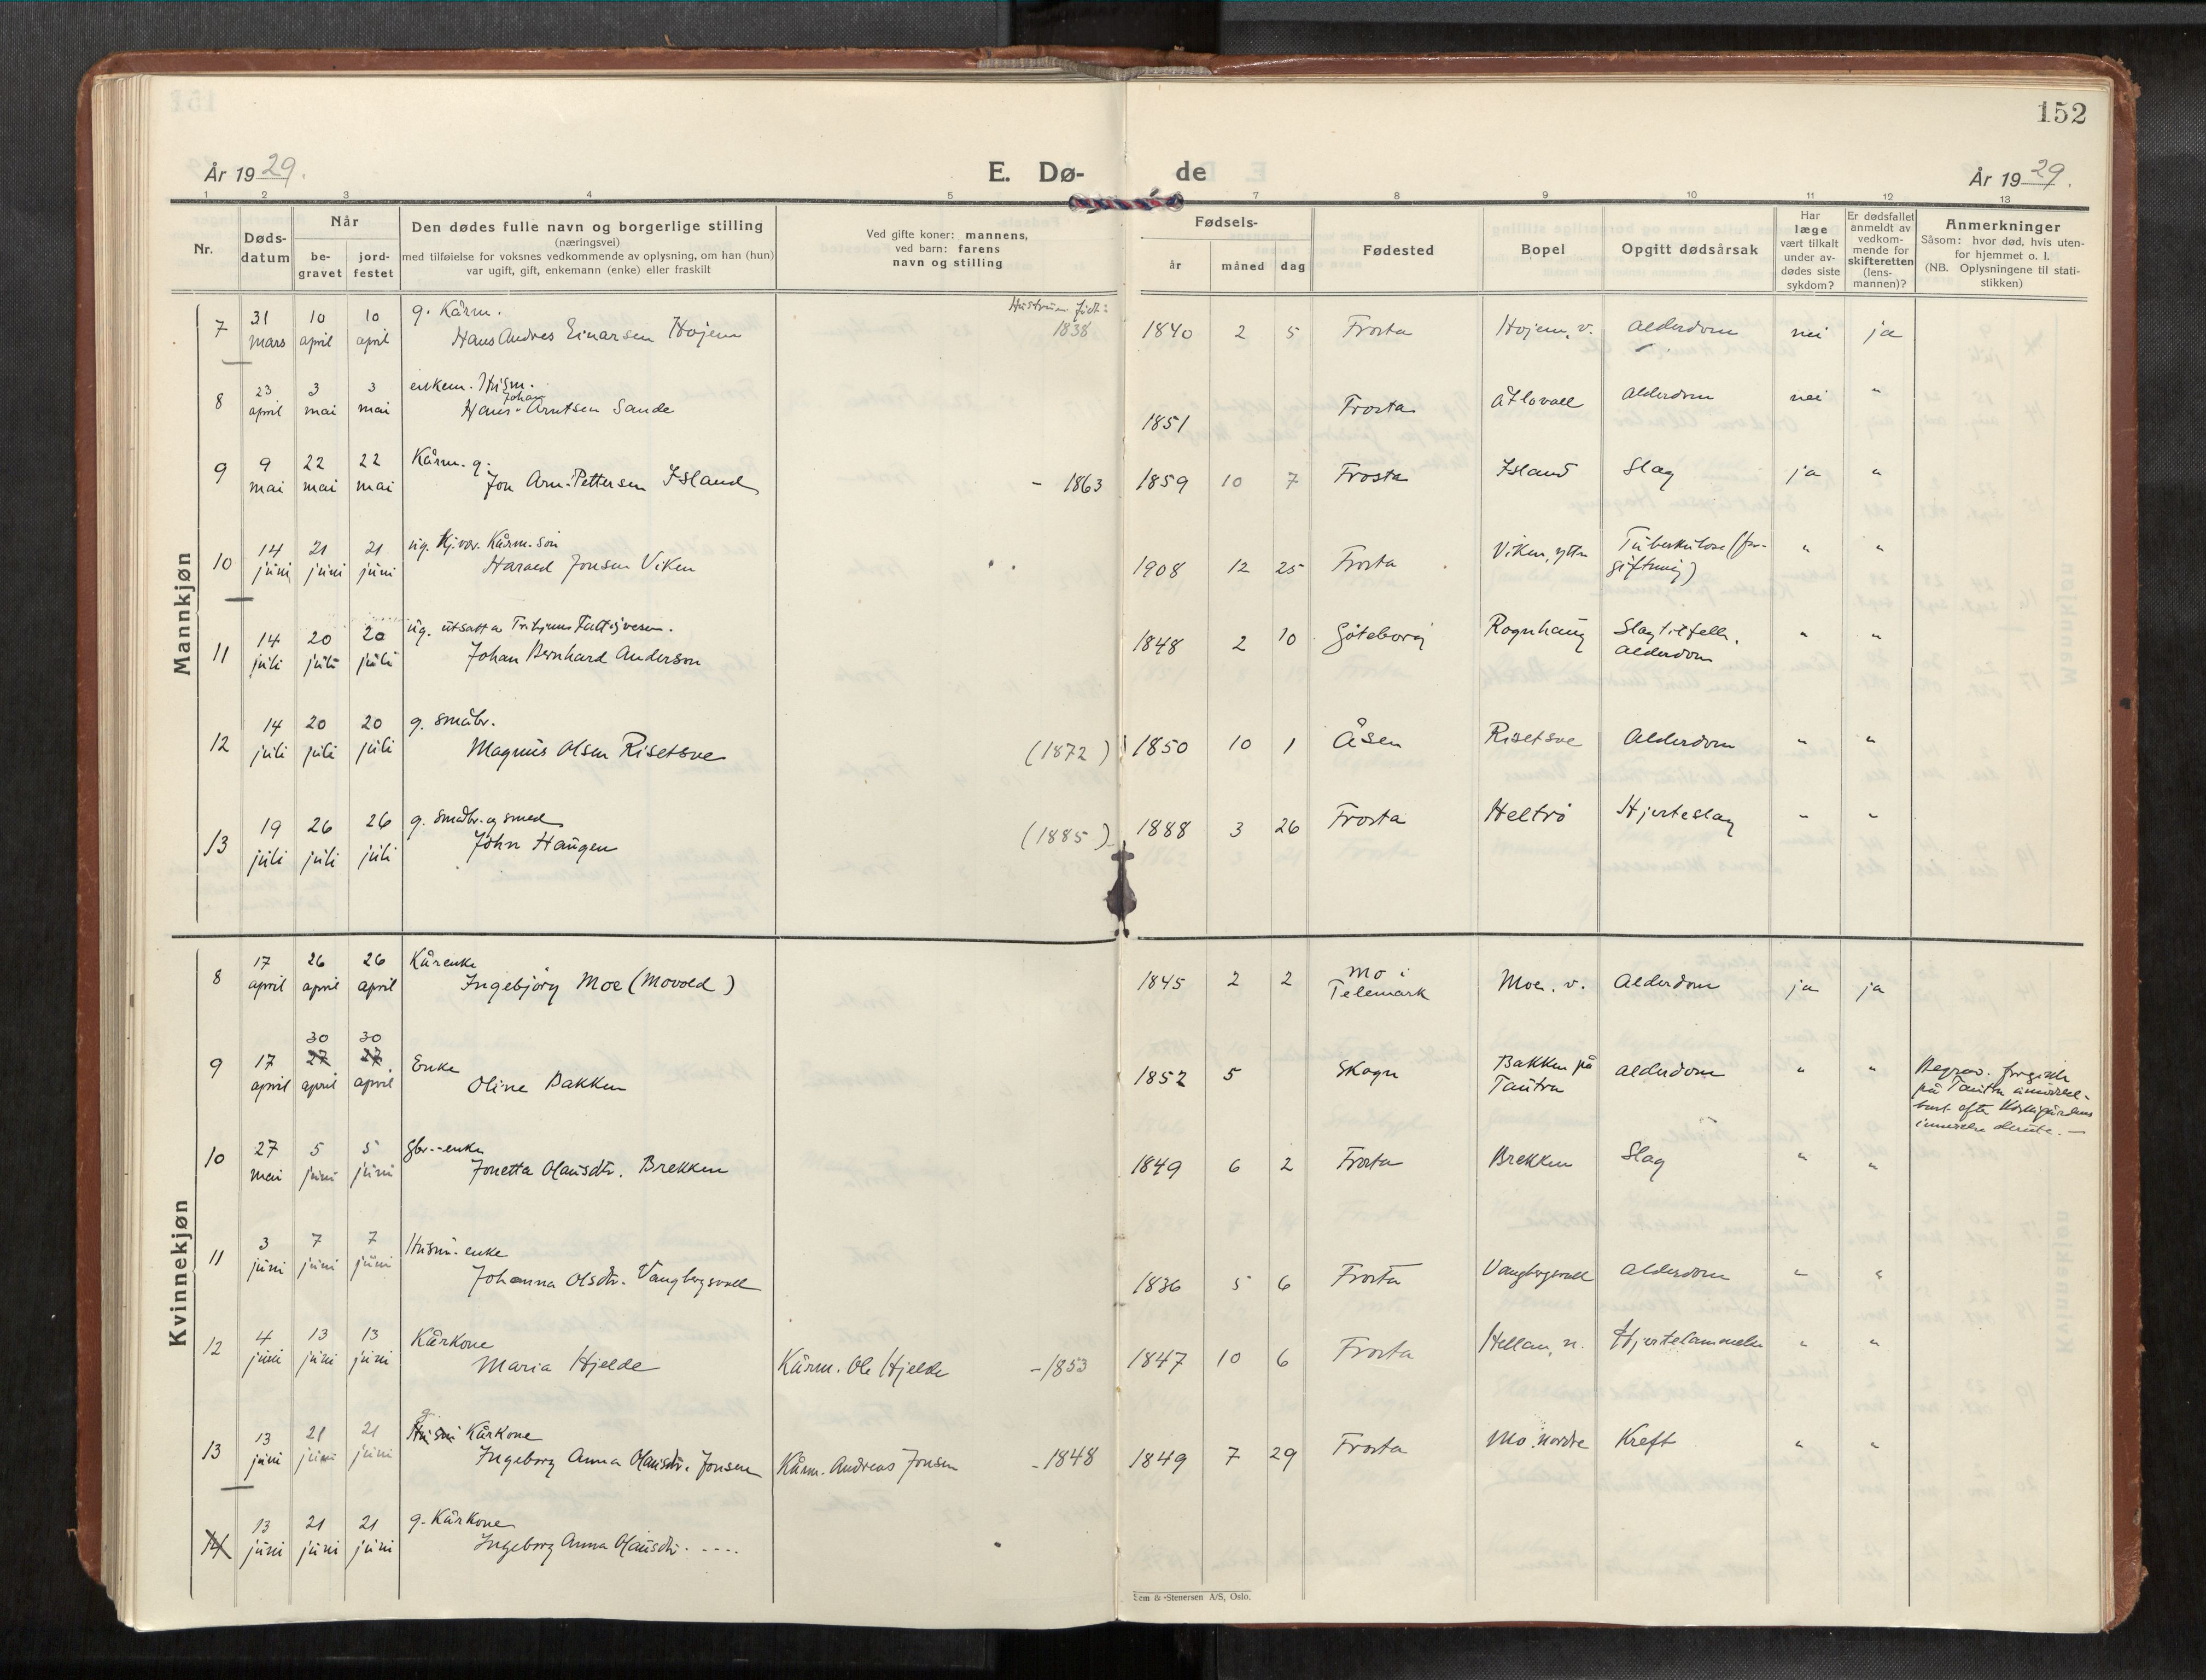 152
År 1929.
E. Dø-
de
År 1929.
1 2 3 4 5 7 8 9 10 11 12 13
Nr.
Døds-
datum
Når
be-
gravet
jord-
festet
Den dødes fulle navn og borgerlige stilling
(næringsvei)
med tilføielse for voksnes vedkommende av oplysning, om han (hun)
var ugift, gift, enkemann (enke) eller fraskilt
Ved gifte koner: mannens,
ved barn: farens
navn og stilling
Fødsels-
år
måned
dag
Fødested
Bopel
Opgitt dødsårsak
Har
læge
vært tilkalt
under av-
dødes siste
sykdom?
Er dødsfallet
anmeldt av
vedkom-
mende for
skifteretten
(lens-
mannen)?
Anmerkninger
Såsom: hvor død, hvis uten-
for hjemmet o. l.
(NB. Oplysningene til stati-
stikken)
Mannkjøn
31 10 10 g. Kårm. Hustruen født:
7 mars april april Hans Andres Einarsen Hojem 1838 1840 2 5 Frosta Hojem, v. alderdom nei ja
23 3 3 enkem. Husm.
Johan
8 april mai mai Hans Arntsen Sande 1851 Frosta alderdom nei "
9 22 22 Kårm. g.
9 mai mai mai Jon Arn. Pettersen Island - 1863 1859 10 7 Frosta Island Slag ja "
14 21 21 ug. Kårm. søn
10 juni juni juni Harald Jonsen Viken 1908 12 25 Frosta Viken, ytre Tuberkulose (for-
giftning) " "
14 20 20 ug. utsatt av Fattigvesen.
11 juli juli juli Johan Bernhard Anderson 1848 2 10 Göteborg Rognhaug Slagtilfelle.
alderdom " "
14 20 20 g. småbr.
12 juli juli juli Magnus Olsen Risetsve (1872) 1850 10 1 Åsen Risetsve Alderdom " "
19 26 26 g. småbr. og smed
13 juli juli juli John Haugen (1885) 1888 3 26 Frosta Heltrø Hjerteslag " "
Kvinnekjøn
17 26 26 Kårenke
8 april april april Ingebjørg Moe (Movold) 1845 2 2 Mo i
Telemark Moen. v. Alderdom ja ja
30 30
17 27 27 Enke
9 april april april Oline Bakken 1852 5 Skogn Bakken på
Tautra alderdom " "
Begrav. foregikk
på Tautra umiddel-
bart efter Kirkegårdens
innvielse derute. —
27 5 5 Gbr.-enke
10 mai juni juni Jonetta Olausdtr. Brekken 1849 6 2 Frosta Brekken Slag " "
3 7 7 Husm.-enke
11 juni juni juni Johanna Olsdtr. Vangbergsvald 1836 5 6 Frosta Vangbergsvald Alderdom " "
4 13 13 Kårkone
12 juni juni juni Maria Hjelde Kårm. Ole Hjelde - 1853 1847 10 6 Frosta Hellan, n. Hjertelammelse " "
13 21 21 g. Husm Kårkone
13 juni juni juni Ingeborg Anna Olausdtr. Jonsen Kårm. Andreas Jonsen - 1848 1849 7 29 Frosta Mo nordre Kreft " "
13 21 21 g. Kårkone
14 juni juni juni Ingeborg Anna Olausdtr. ....
Sem & Stenersen A/S, Oslo.